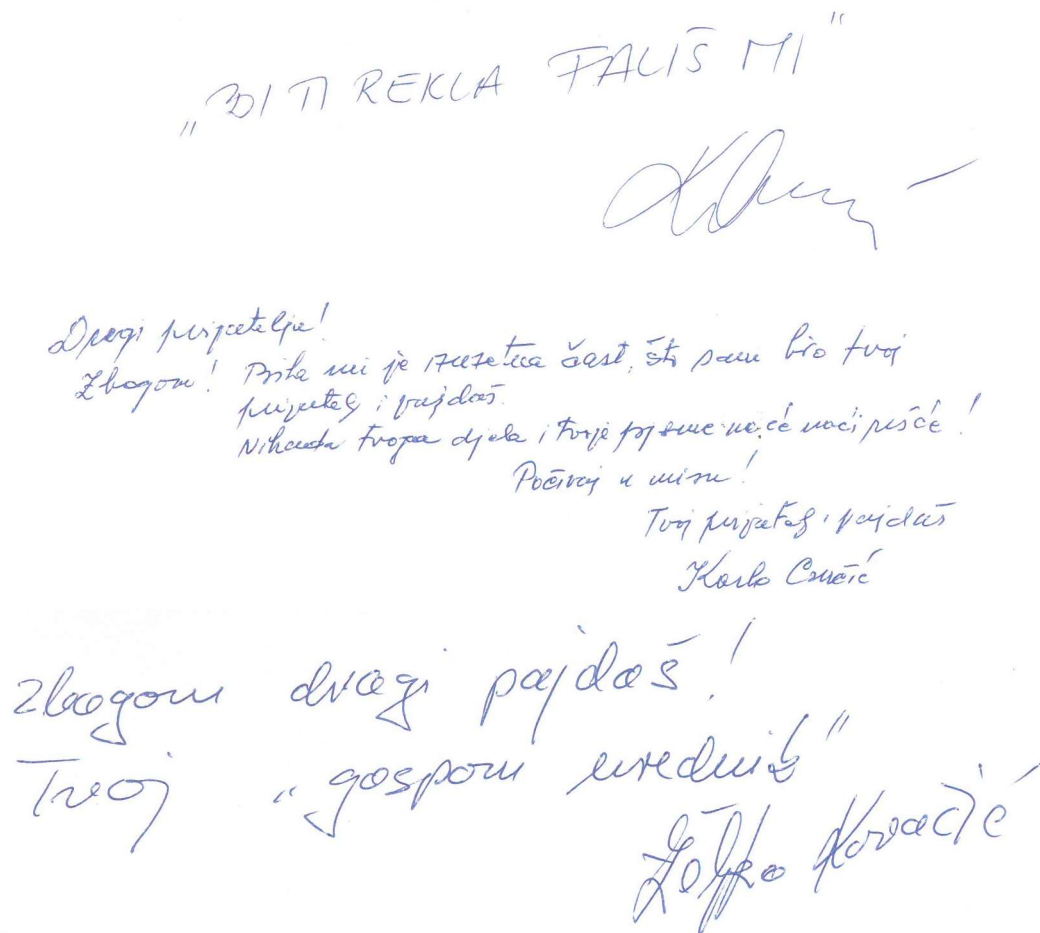 „BI TI REKLA FALIŠ MI"
Dragi prijatelju!
Zbogom! Bila mi je izuzetna čast, što sam bio tvoj
prijatelj i pajdaš.
Nikada tvoja djela i tvoje pjesme neće moći
Počivaj u miru!
Tvoj prijatelj i pajdaš
Karlo
Zbogom dragi pajdaš!
Tvoj „gospon urednik"
Željko Kovačić